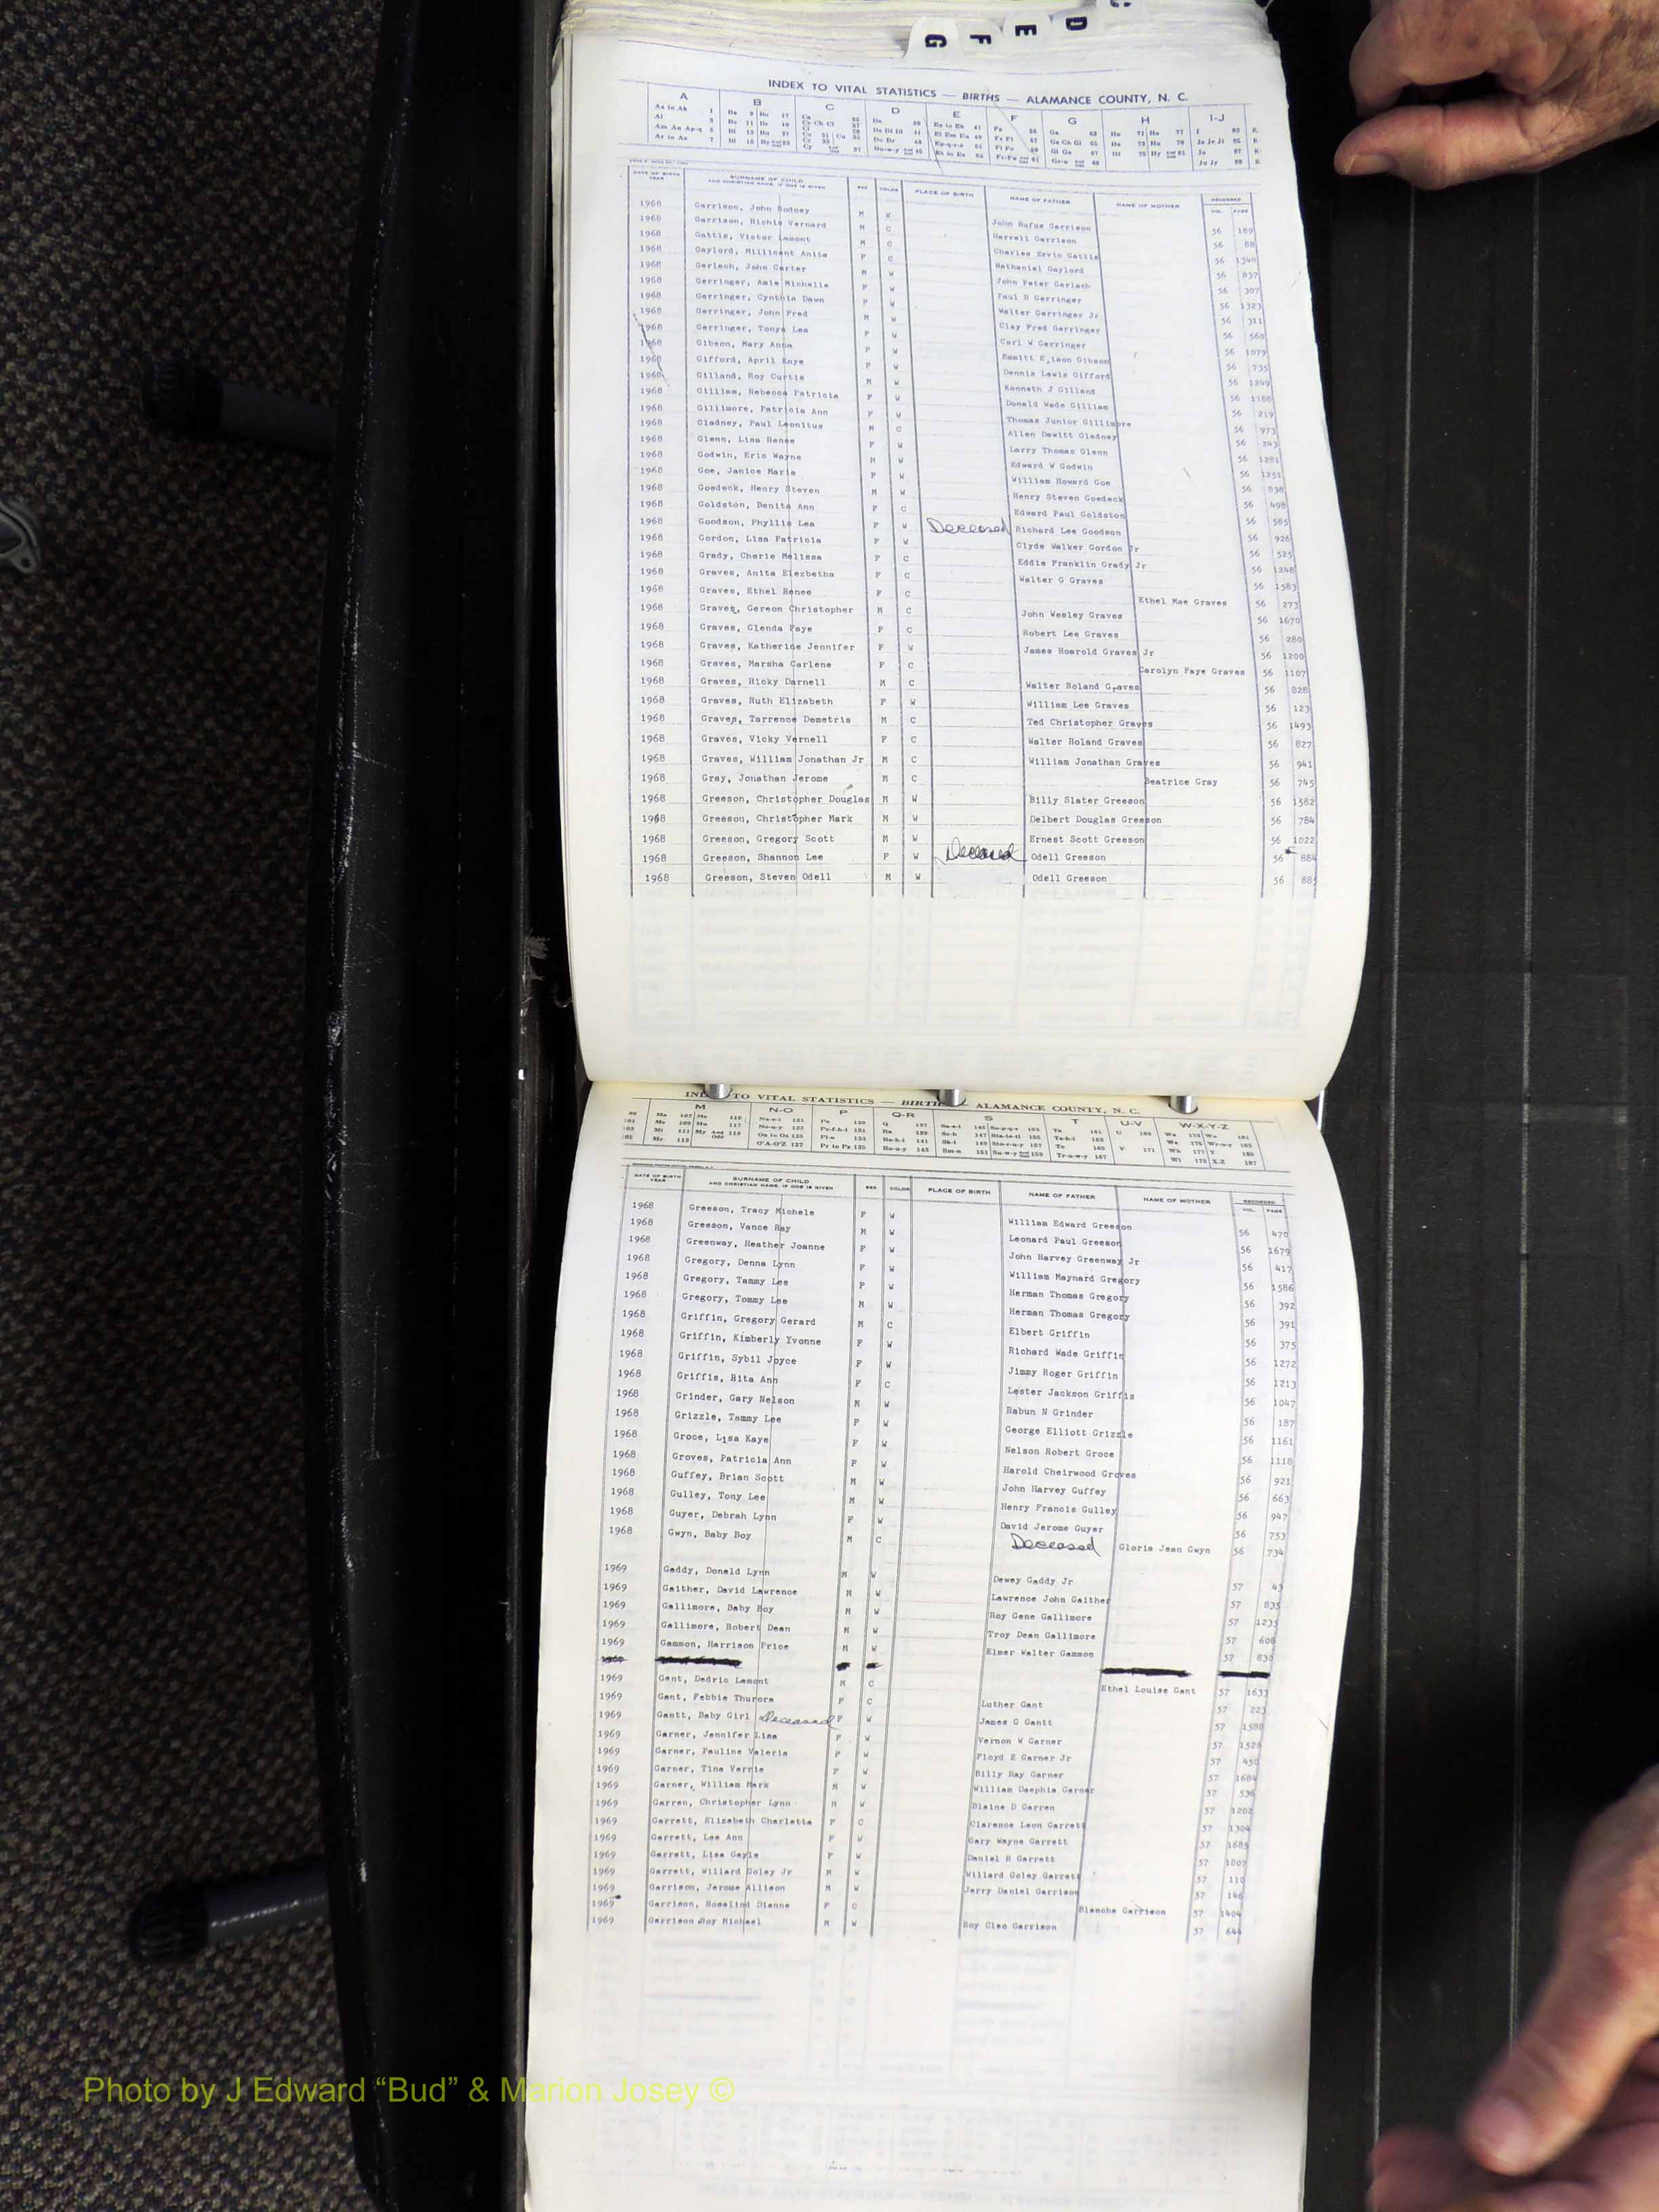 G F E D
INDEX TO VITAL STATISTICS — BIRTHS — ALAMANCE COUNTY, N. C.
A B C D E F G H I-J
DATE OF BIRTH YEAR SURNAME OF CHILD AND CHRISTIAN NAME, IF ONE IS GIVEN SEX COLOR PLACE OF BIRTH NAME OF FATHER NAME OF MOTHER RECORDED VOL. PAGE
1968 Garrison, John Rodney M W John Rufus Garrison 56 189
1968 Garrison, Richie Vernard M C Harrell Garrison 56 88
1968 Gattis, Victor Lamont M C Charles Ervin Gattis 56 1340
1968 Gaylord, Millinent Anita F C Nathaniel Gaylord 56 837
1968 Gerlach, John Carter M W John Peter Gerlach 56 307
1968 Gerringer, Amie Michelle F W Paul R Gerringer 56 1323
1968 Gerringer, Cynthia Dawn F W Walter Gerringer Jr 56 311
1968 Gerringer, John Fred M W Clay Fred Gerringer 56 560
1968 Gerringer, Tonya Lea F W Carl W Gerringer 56 1079
1968 Gibson, Mary Anna F W Gibson 56 735
1968 Gifford, April Kaye F W Dennis Lewis Gifford 56 1249
1968 Gilland, Roy Curtis M W Kenneth J Gilland 56 1188
1968 Gilliam, Rebecca Patricia F W Donald Wade Gilliam 56 219
1968 Gillimore, Patricia Ann F W Thomas Junior Gillimore 56 973
1968 Gladney, Paul Leonitus M C Allen Dewitt Gladney 56 243
1968 Glenn, Lisa Renee F W Larry Thomas Glenn 56 1281
1968 Godwin, Eric Wayne M W Edward W Godwin 56 1251
1968 Goe, Janice Marie F W William Howard Goe 56 838
1968 Goedeck, Henry Steven M W Henry Steven Goedeck 56 498
1968 Goldston, Benita Ann F C Edward Paul Goldston 56 585
1968 Goodson, Phyllis Lea F W Deceased Richard Lee Goodson 56 926
1968 Gordon, Lisa Patricia F W Clyde Walker Gordon Jr 56 525
1968 Grady, Cherie Melissa F C Eddie Franklin Grady Jr 56 1248
1968 Graves, Anita Elezbetha F C Walter G Graves 56 1583
1968 Graves, Ethel Renee F C Ethel Mae Graves 56 273
1968 Graves, Gereon Christopher M C John Wesley Graves 56 1670
1968 Graves, Glenda Faye F C Robert Lee Graves 56 280
1968 Graves, Katherine Jennifer F W James Hoarold Graves Jr 56 1200
1968 Graves, Marsha Carlene F C Carolyn Faye Graves 56 1107
1968 Graves, Ricky Darnell M C Walter Roland Graves 56 828
1968 Graves, Ruth Elizabeth F W William Lee Graves 56 123
1968 Graves, Tarrence Demetris M C Ted Christopher Graves 56 1493
1968 Graves, Vicky Vernell F C Walter Roland Graves 56 827
1968 Graves, William Jonathan Jr M C William Jonathan Graves 56 941
1968 Gray, Jonathan Jerome M C Beatrice Gray 56 745
1968 Greeson, Christopher Douglas M W Billy Slater Greeson 56 1582
1968 Greeson, Christopher Mark M W Delbert Douglas Greeson 56 784
1968 Greeson, Gregory Scott M W Ernest Scott Greeson 56 1022
1968 Greeson, Shannon Lee F W Deceased Odell Greeson 56 884
1968 Greeson, Steven Odell M W Odell Greeson 56 885
INDEX TO VITAL STATISTICS — BIRTHS — ALAMANCE COUNTY, N. C.
M N-O P Q-R S T U-V W-X-Y-Z
DATE OF BIRTH YEAR SURNAME OF CHILD AND CHRISTIAN NAME, IF ONE IS GIVEN SEX COLOR PLACE OF BIRTH NAME OF FATHER NAME OF MOTHER RECORDED VOL. PAGE
1968 Greeson, Tracy Michele F W William Edward Greeson 56 470
1968 Greeson, Vance Ray M W Leonard Paul Greeson 56 1679
1968 Greenway, Heather Joanne F W John Harvey Greenway Jr 56 417
1968 Gregory, Denna Lynn F W William Maynard Gregory 56 1586
1968 Gregory, Tammy Lee F W Herman Thomas Gregory 56 392
1968 Gregory, Tommy Lee M W Herman Thomas Gregory 56 391
1968 Griffin, Gregory Gerard M C Elbert Griffin 56 375
1968 Griffin, Kimberly Yvonne F W Richard Wade Griffin 56 1272
1968 Griffin, Sybil Joyce F W Jimmy Roger Griffin 56 1213
1968 Griffis, Rita Ann F C Lester Jackson Griffis 56 1047
1968 Grinder, Gary Nelson M W Rabun N Grinder 56 187
1968 Grizzle, Tammy Lee F W George Elliott Grizzle 56 1161
1968 Groce, Lisa Kaye F W Nelson Robert Groce 56 1118
1968 Groves, Patricia Ann F W Harold Cheirwood Groves 56 921
1968 Guffey, Brian Scott M W John Harvey Guffey 56 663
1968 Gulley, Tony Lee M W Henry Francis Gulley 56 947
1968 Guyer, Debrah Lynn F W David Jerome Guyer 56 753
1968 Gwyn, Baby Boy M C Deceased Gloria Jean Gwyn 56 734
1969 Gaddy, Donald Lynn M W Dewey Gaddy Jr 57 43
1969 Gaither, David Lawrence M W Lawrence John Gaither 57 835
1969 Gallimore, Baby Boy M W Roy Gene Gallimore 57 1235
1969 Gallimore, Robert Dean M W Troy Dean Gallimore 57 608
1969 Gammon, Harrison Price M W Elmer Walter Gammon 57 830
1969 Gant, Dedric Lamont M C Ethel Louise Gant 57 1633
1969 Gant, Febbie Thurora F C Luther Gant 57 223
1969 Gantt, Baby Girl Deceased F W James G Gantt 57 1588
1969 Garner, Jennifer Lisa F W Vernon W Garner 57 1528
1969 Garner, Pauline Valeria F W Floyd E Garner Jr 57 450
1969 Garner, Tina Vernie F W Billy Ray Garner 57 1684
1969 Garner, William Mark M W William Daephia Garner 57 536
1969 Garren, Christopher Lynn M W Blaine D Garren 57 1202
1969 Garrett, Elizabeth Charletta F C Clarence Leon Garrett 57 1304
1969 Garrett, Lee Ann F W Gary Wayne Garrett 57 1685
1969 Garrett, Lisa Gayle F W Daniel R Garrett 57 1807
1969 Garrett, Willard Goley Jr M W Willard Goley Garrett 57 110
1969 Garrison, Jerome Allison M W Jerry Daniel Garrison 57 146
1969 Garrison, Rosalind Dianne F C Blanche Garrison 57 1404
1969 Garrison Roy Michael M W Roy Cleo Garrison 57 644
Photo by J Edward “Bud” & Marion Josey ©